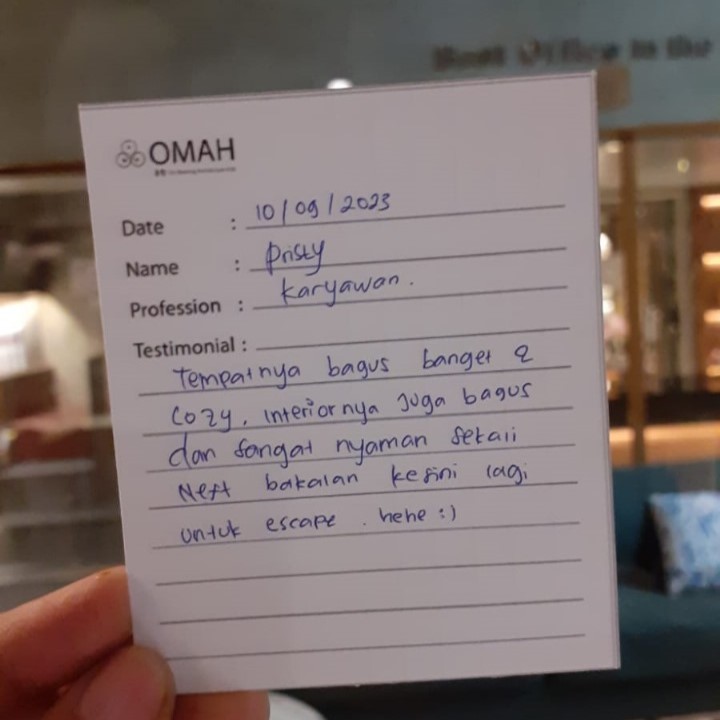 OMAH
Date : 10/09/2023
Name : Pristy
Profession : Karyawan.
Testimonial :
Tempatnya bagus banget &
Cozy, interiornya Juga bagus
dan sangat nyaman sekali
Next bakalan kesini lagi
untuk escape. hehe :)